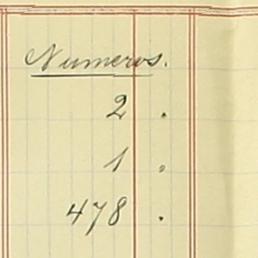 Numeros.
2 .
1 .
478 .